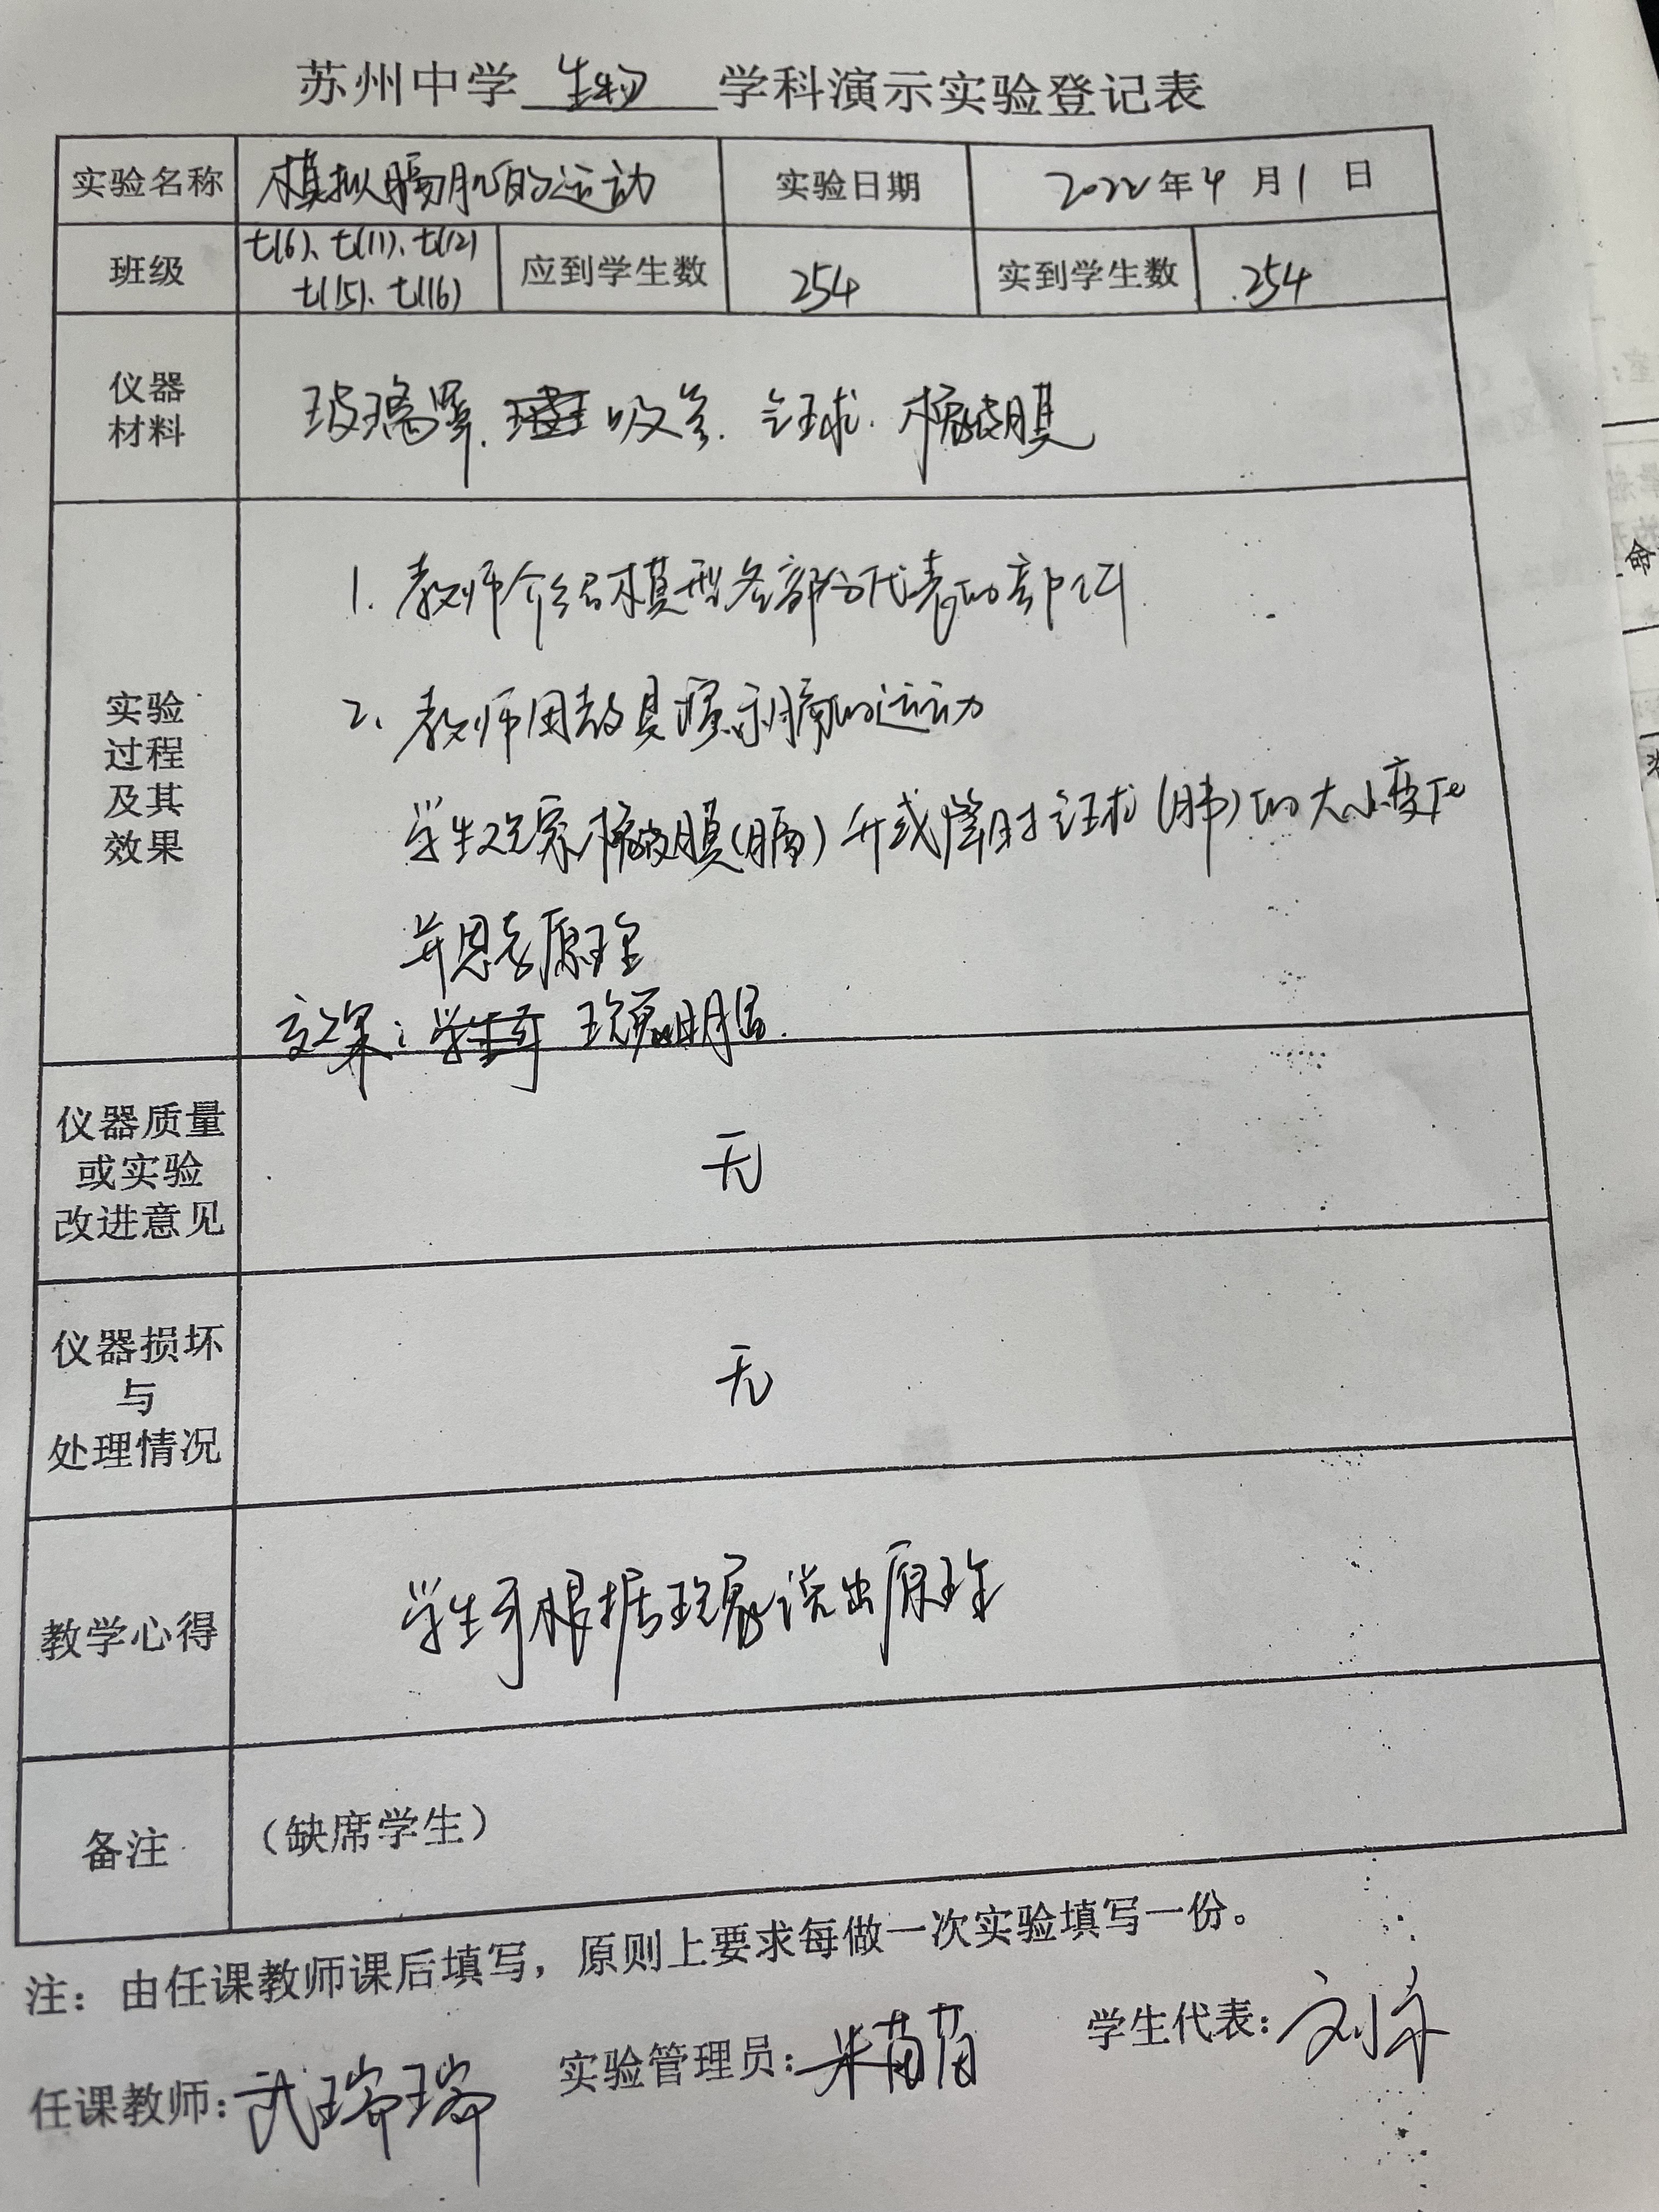 苏州中学 生物 学科演示实验登记表
实验名称 模拟膈肌的运动 实验日期 2022年4月1日
班级 七(6)、七(11)、七(12) 应到学生数 254 实到学生数 254
七(15)、七(16)
仪器
材料
玻璃罩. 吸管. 气球. 橡皮膜
实验
过程
及其
效果
1. 教师介绍模型各部分代表的部位
2、教师用教具演示膈的运动
学生观察橡皮膜(膈)升或降时气球(肺)的大小变化
并思考原理
效果: 现象明显.
仪器质量
或实验
改进意见
无
仪器损坏
与
处理情况
无
教学心得 学生可根据现象说出原理
备注 (缺席学生)
注：由任课教师课后填写，原则上要求每做一次实验填写一份。
任课教师: 武瑞瑞 实验管理员: 朱苗苗 学生代表: 刘
命